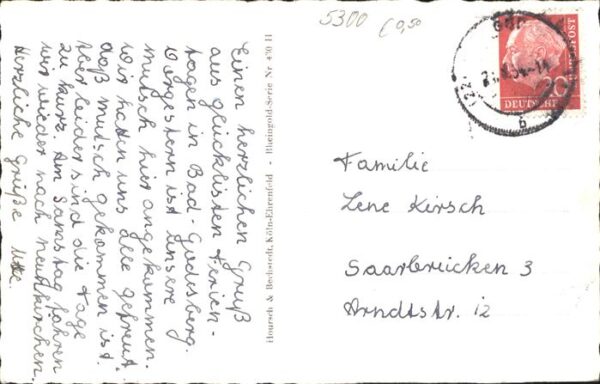 Einen herzlichen Gruß
aus glücklisten Ferien-
tagen in Bad-Godesberg.
Vorgestern ist unsere
Mutsch hier angekommen.
Wir hatten uns alle gefreut
daß Mutsch gekommen ist.
Aber leider sind die Tage
zu kurz. Am Samstag fahren
wir wieder nach Neunkirchen.
Herzliche Grüße Ute.
Hoursch & Bechstedt, Köln-Ehrenfeld - Rheingold-Serie Nr. 430 H
5300 € 0,50
POST
20
DEUTSCHE
(22
b
Familie
Lene Kirsch
Saarbrücken 3
Arndtstr. 12